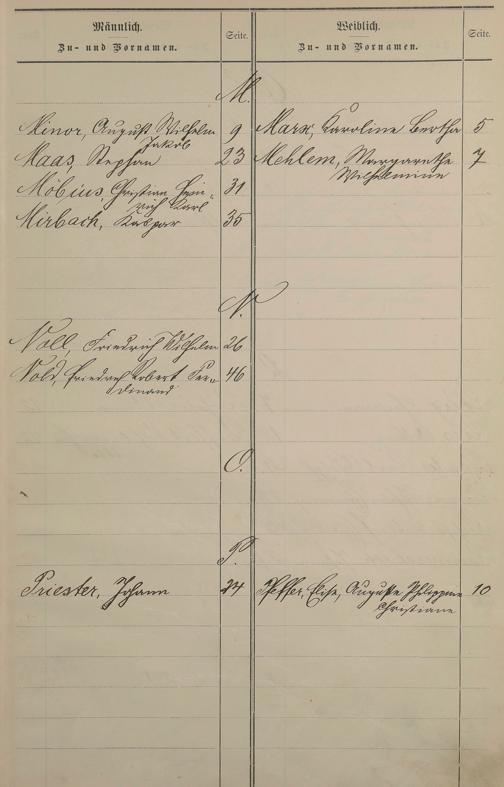 Männlich.
Zu- und Vornamen.
Seite.
Weiblich.
Zu- und Vornamen.
Seite.
M.
Minor, August Wilhelm 9
Jakob
Maas, Stephan 23
Möbius, Christian Hein- 31
rich Karl
Mirbach, Kaspar 35
Marx, Karoline Bertha 5
Mehlem, Margarethe 7
Wilhelmine
N.
Noll, Friedrich Wilhelm 26
Nold, Friedrich Robert Fer- 46
dinand
O.
P.
Priester, Johann 24
Pfeffer, Elise, Auguste Philippine 10
Christiane